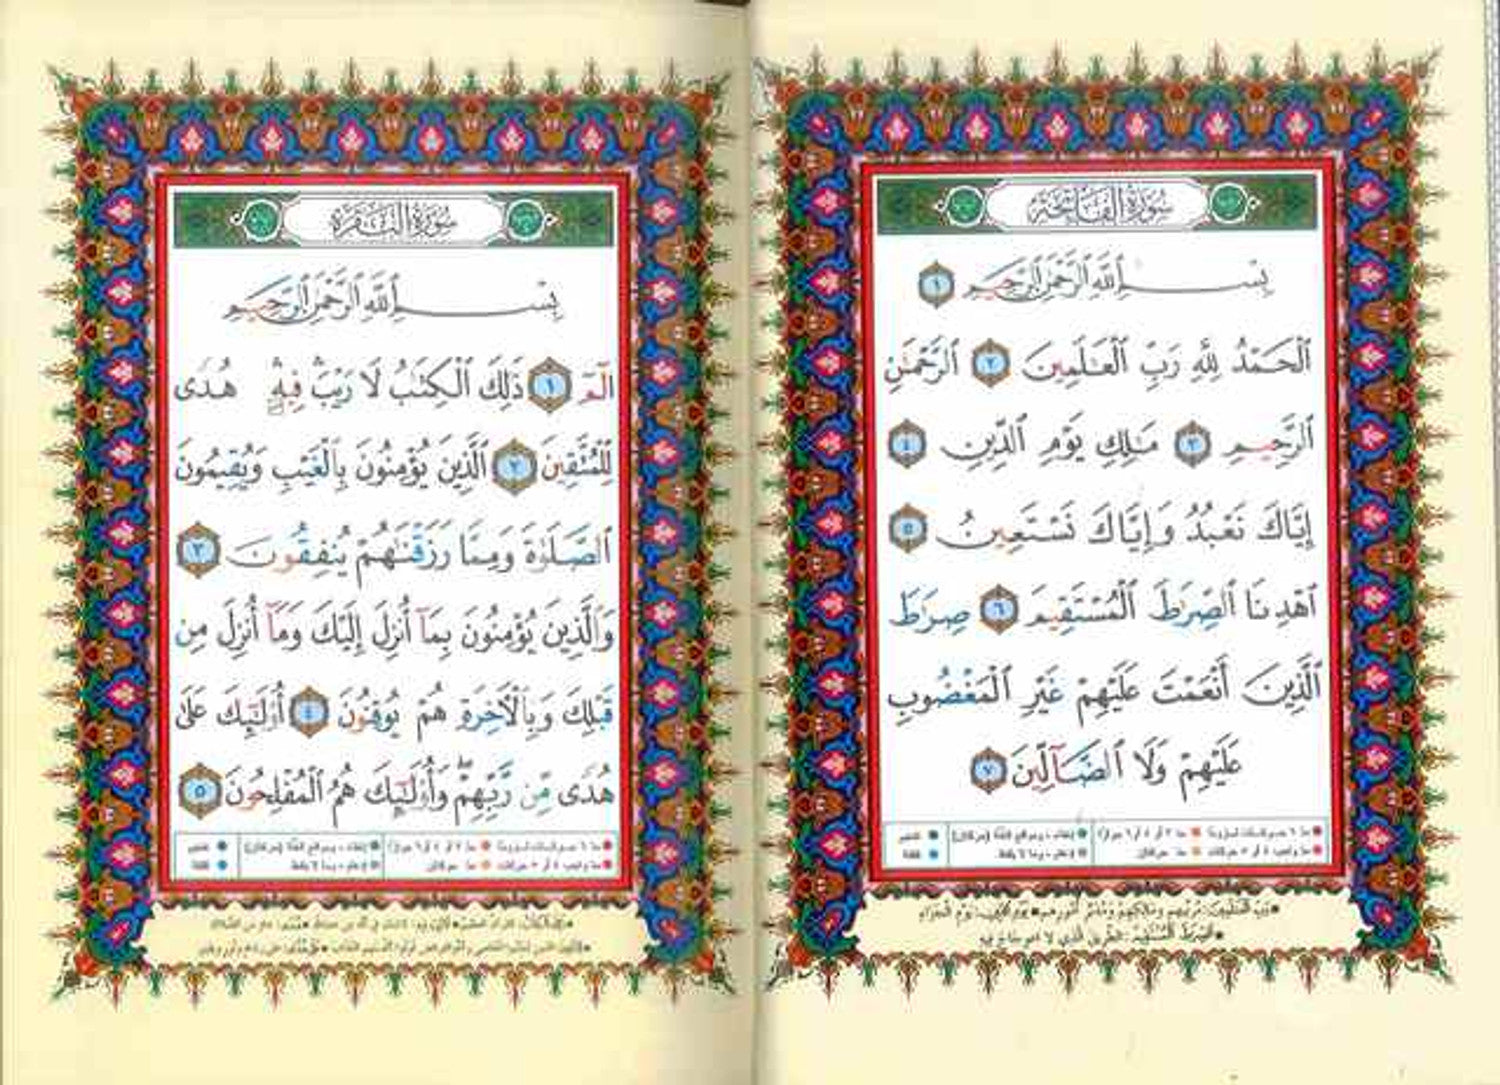 سُورَةُ الْفَاتِحَةِ
بِسْمِ ٱللَّهِ ٱلرَّحْمَٰنِ ٱلرَّحِيمِ ١
ٱلْحَمْدُ لِلَّهِ رَبِّ ٱلْعَـٰلَمِينَ ٢ ٱلرَّحْمَـٰنِ
ٱلرَّحِيمِ ٣ مَـٰلِكِ يَوْمِ ٱلدِّينِ ٤
إِيَّاكَ نَعْبُدُ وَإِيَّاكَ نَسْتَعِينُ ٥
ٱهْدِنَا ٱلصِّرَٰطَ ٱلْمُسْتَقِيمَ ٦ صِرَٰطَ
ٱلَّذِينَ أَنْعَمْتَ عَلَيْهِمْ غَيْرِ ٱلْمَغْضُوبِ
عَلَيْهِمْ وَلَا ٱلضَّآلِّينَ ٧
سُورَةُ الْبَقَرَةِ
بِسْمِ ٱللَّهِ ٱلرَّحْمَٰنِ ٱلرَّحِيمِ
الٓمٓ ١ ذَٰلِكَ ٱلْكِتَـٰبُ لَا رَيْبَ ۛ فِيهِ ۛ هُدًى
لِّلْمُتَّقِينَ ٢ ٱلَّذِينَ يُؤْمِنُونَ بِٱلْغَيْبِ وَيُقِيمُونَ
ٱلصَّلَوٰةَ وَمِمَّا رَزَقْنَـٰهُمْ يُنفِقُونَ ٣
وَٱلَّذِينَ يُؤْمِنُونَ بِمَآ أُنزِلَ إِلَيْكَ وَمَآ أُنزِلَ مِن
قَبْلِكَ وَبِٱلْـَٔاخِرَةِ هُمْ يُوقِنُونَ ٤ أُو۟لَـٰٓئِكَ عَلَىٰ
هُدًى مِّن رَّبِّهِمْ ۖ وَأُو۟لَـٰٓئِكَ هُمُ ٱلْمُفْلِحُونَ ٥